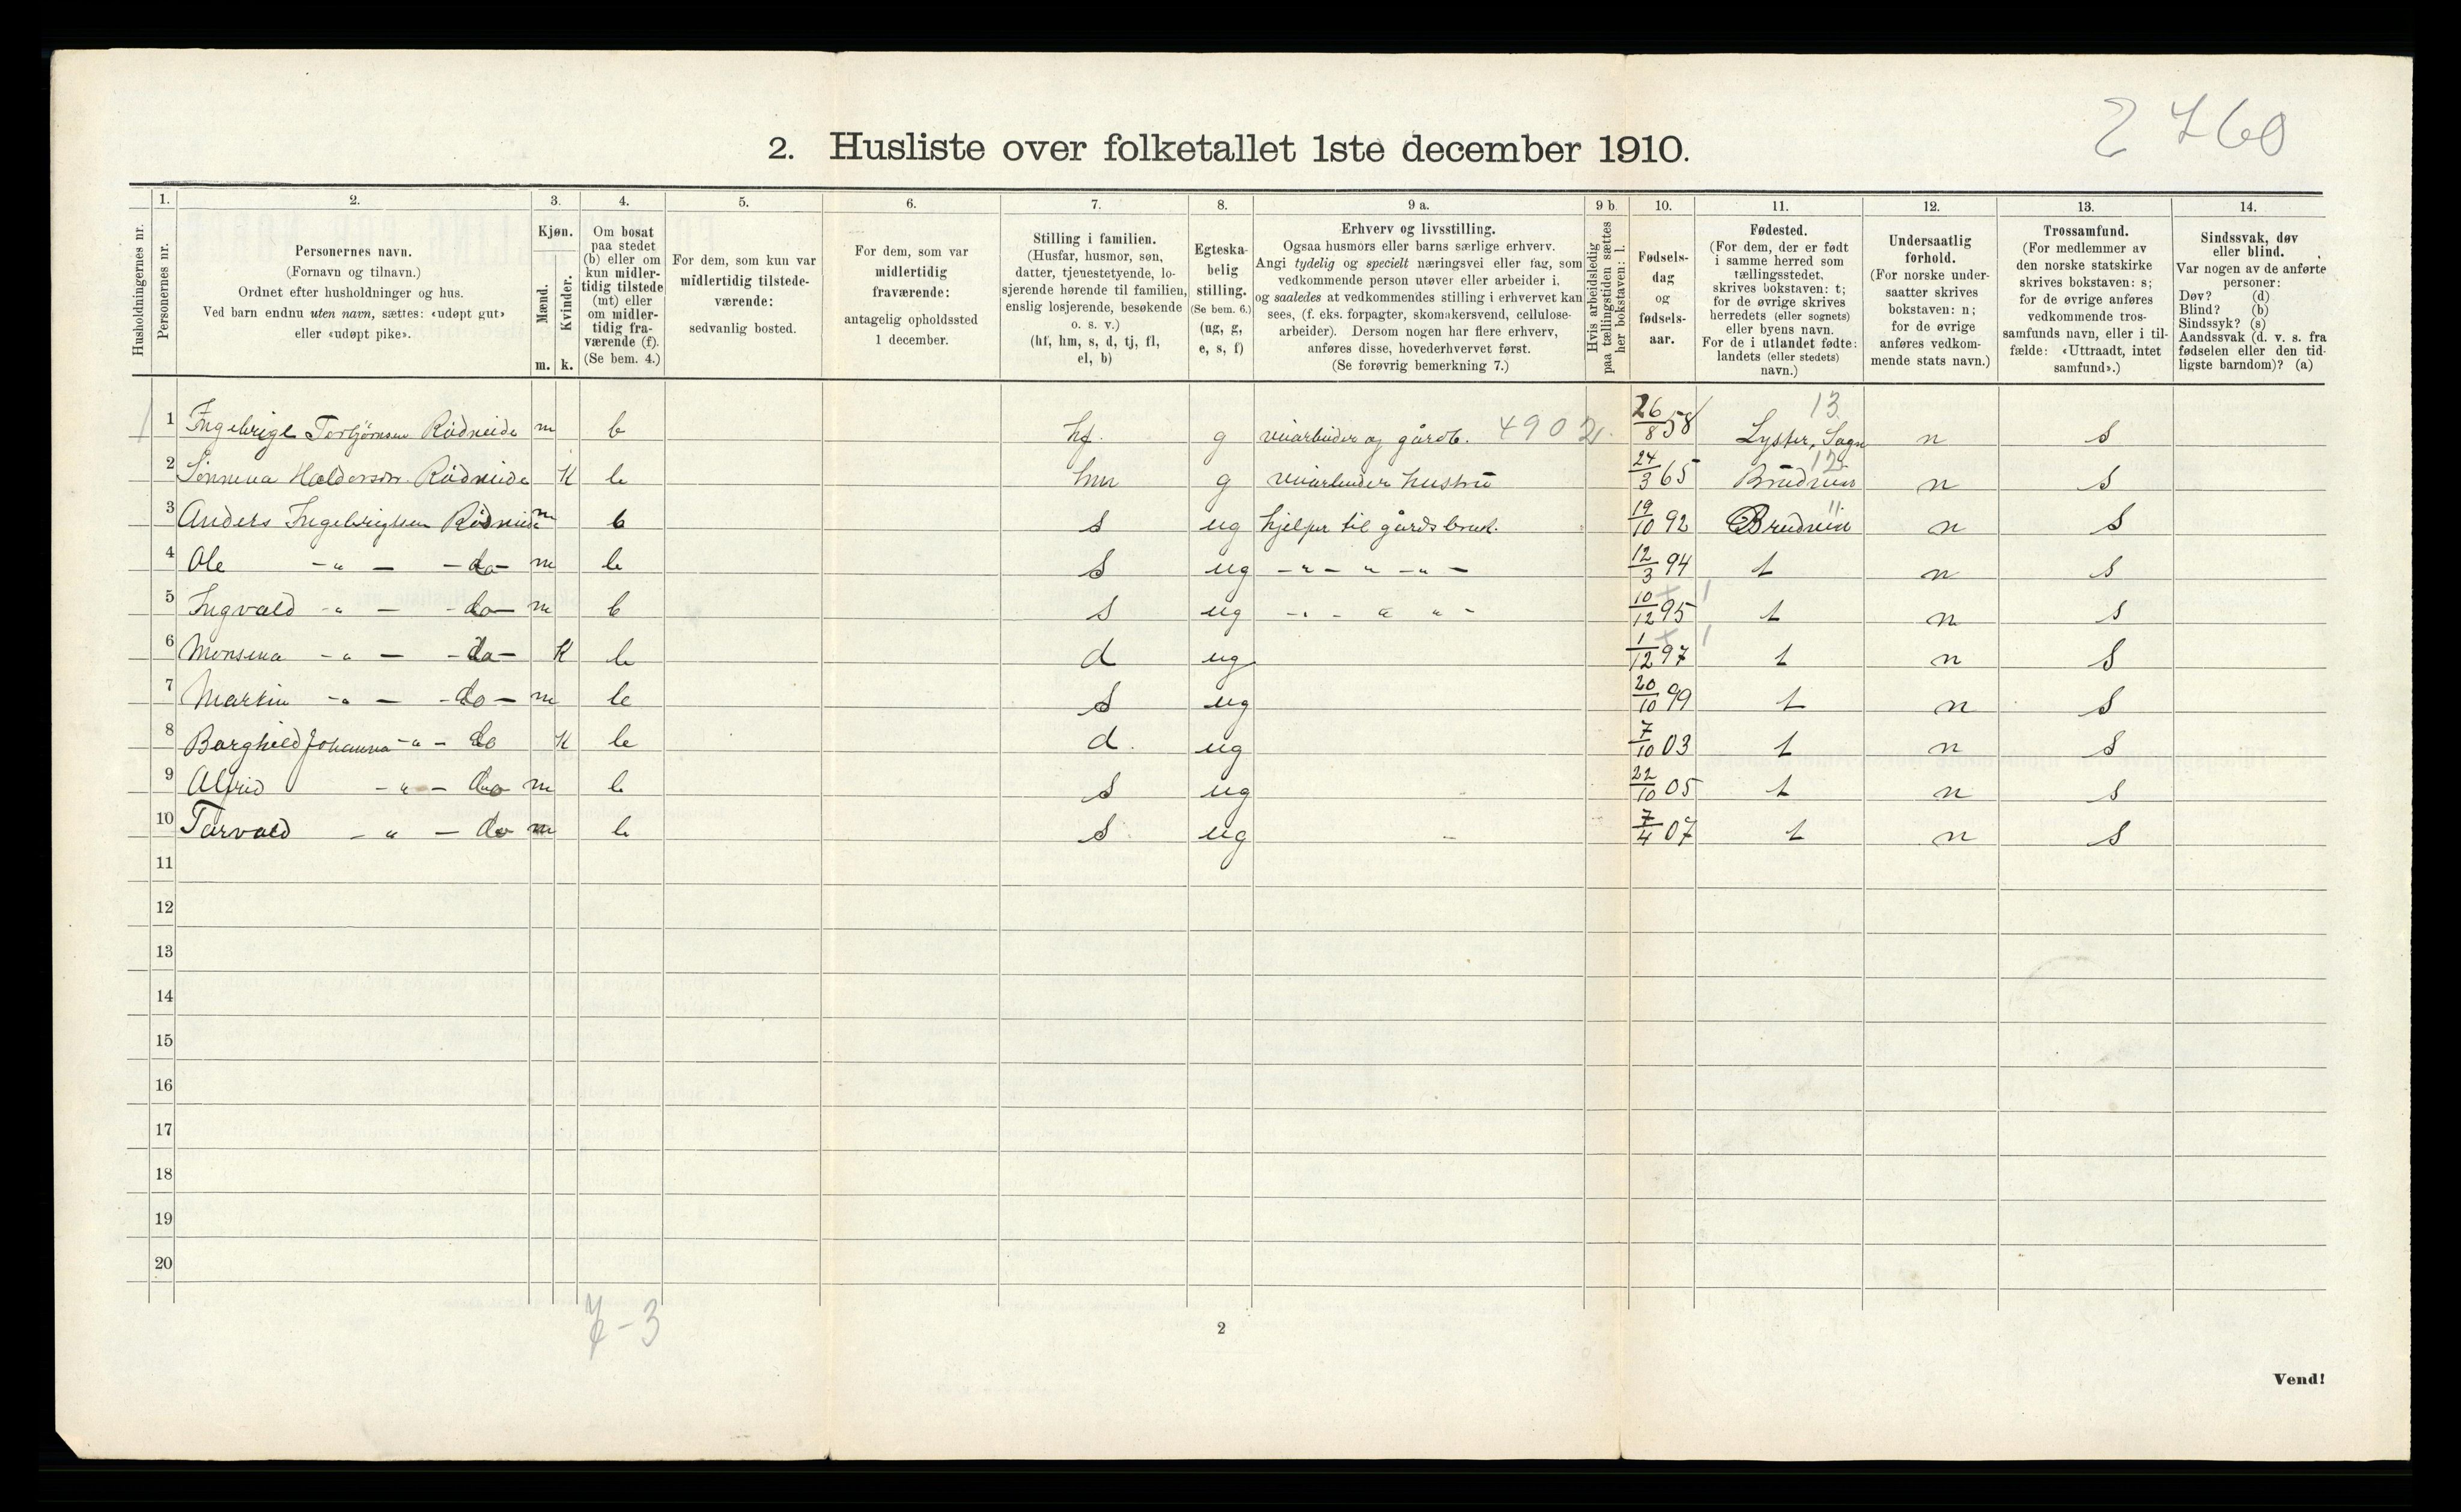 2 760
2. Husliste over folketallet 1ste december 1910.
Husholdningernes nr.
1. Personernes nr.
2. Personernes navn. (Fornavn og tilnavn.) Ordnet efter husholdninger og hus. Ved barn endnu uten navn, sættes: «udøpt gut» eller «udøpt pike».
3. Kjøn. Mænd. m. Kvinder. k.
4. Om bosat paa stedet (b) eller om kun midlertidig tilstede (mt) eller om midlertidig fraværende (f). (Se bem. 4.)
5. For dem, som kun var midlertidig tilstedeværende: sedvanlig bosted.
6. For dem, som var midlertidig fraværende: antagelig opholdssted 1 december.
7. Stilling i familien. (Husfar, husmor, søn, datter, tjenestetyende, losjerende hørende til familien, enslig losjerende, besøkende o. s. v.) (hf, hm, s, d, tj, fl, el, b)
8. Egteskabelig stilling. (Se bem. 6.) (ug, g, e, s, f)
9 a. Erhverv og livsstilling. Ogsaa husmors eller barns særlige erhverv. Angi tydelig og specielt næringsvei eller fag, som vedkommende person utøver eller arbeider i, og saaledes at vedkommendes stilling i erhvervet kan sees, (f. eks. forpagter, skomakersvend, cellulosearbeider). Dersom nogen har flere erhverv, anføres disse, hovederhvervet først. (Se forøvrig bemerkning 7.)
9 b. Hvis arbeidsledig paa tællingstiden sættes her bokstaven: l.
10. Fødselsdag og fødselsaar.
11. Fødested. (For dem, der er født i samme herred som tællingsstedet, skrives bokstaven: t; for de øvrige skrives herredets (eller sognets) eller byens navn. For de i utlandet fødte: landets (eller stedets) navn.)
12. Undersaatlig forhold. (For norske undersaatter skrives bokstaven: n; for de øvrige anføres vedkommende stats navn.)
13. Trossamfund. (For medlemmer av den norske statskirke skrives bokstaven: s; for de øvrige anføres vedkommende trossamfunds navn, eller i tilfælde: «Uttraadt, intet samfund».)
14. Sindssvak, døv eller blind. Var nogen av de anførte personer: Døv? (d) Blind? (b) Sindssyk? (s) Aandssvak (d. v. s. fra fødselen eller den tidligste barndom)? (a)
1 1 Ingebrigt Torbjørnsen Rödneide m b hf. g veiarbeider og gårdb. 4902 26/8 58 Lyster, Sogn 13 n s
2 Haldorsdr. Rödneide K b hm g veiarbeiders hustru 24/3 65 12 n s
3 Anders Ingebrigtsen Rödneide m b s ug hjelper til gårdsbruk. 19/10 92 11 n s
4 Ole -"- -do- m b s ug -"- " -"- 12/3 94 t n s
5 Ingvald -"- -do- m b s ug -"- " " - 10/12 95 1 t n s
6 Monsena -"- -do- K b d ug 1/12 97 1 t n s
7 Martin -"- -do- m b s ug 20/10 99 t n s
8 Borghild Johanna -"- do K b d. ug 7/10 03 t n s
9 Alfrid -"- do m b s ug 22/10 05 t n s
10 Torvald -"- do m b s ug - 7/4 07 t n s
11
12
13
14
15
16
17
18
19
20
7-3
2
Vend!